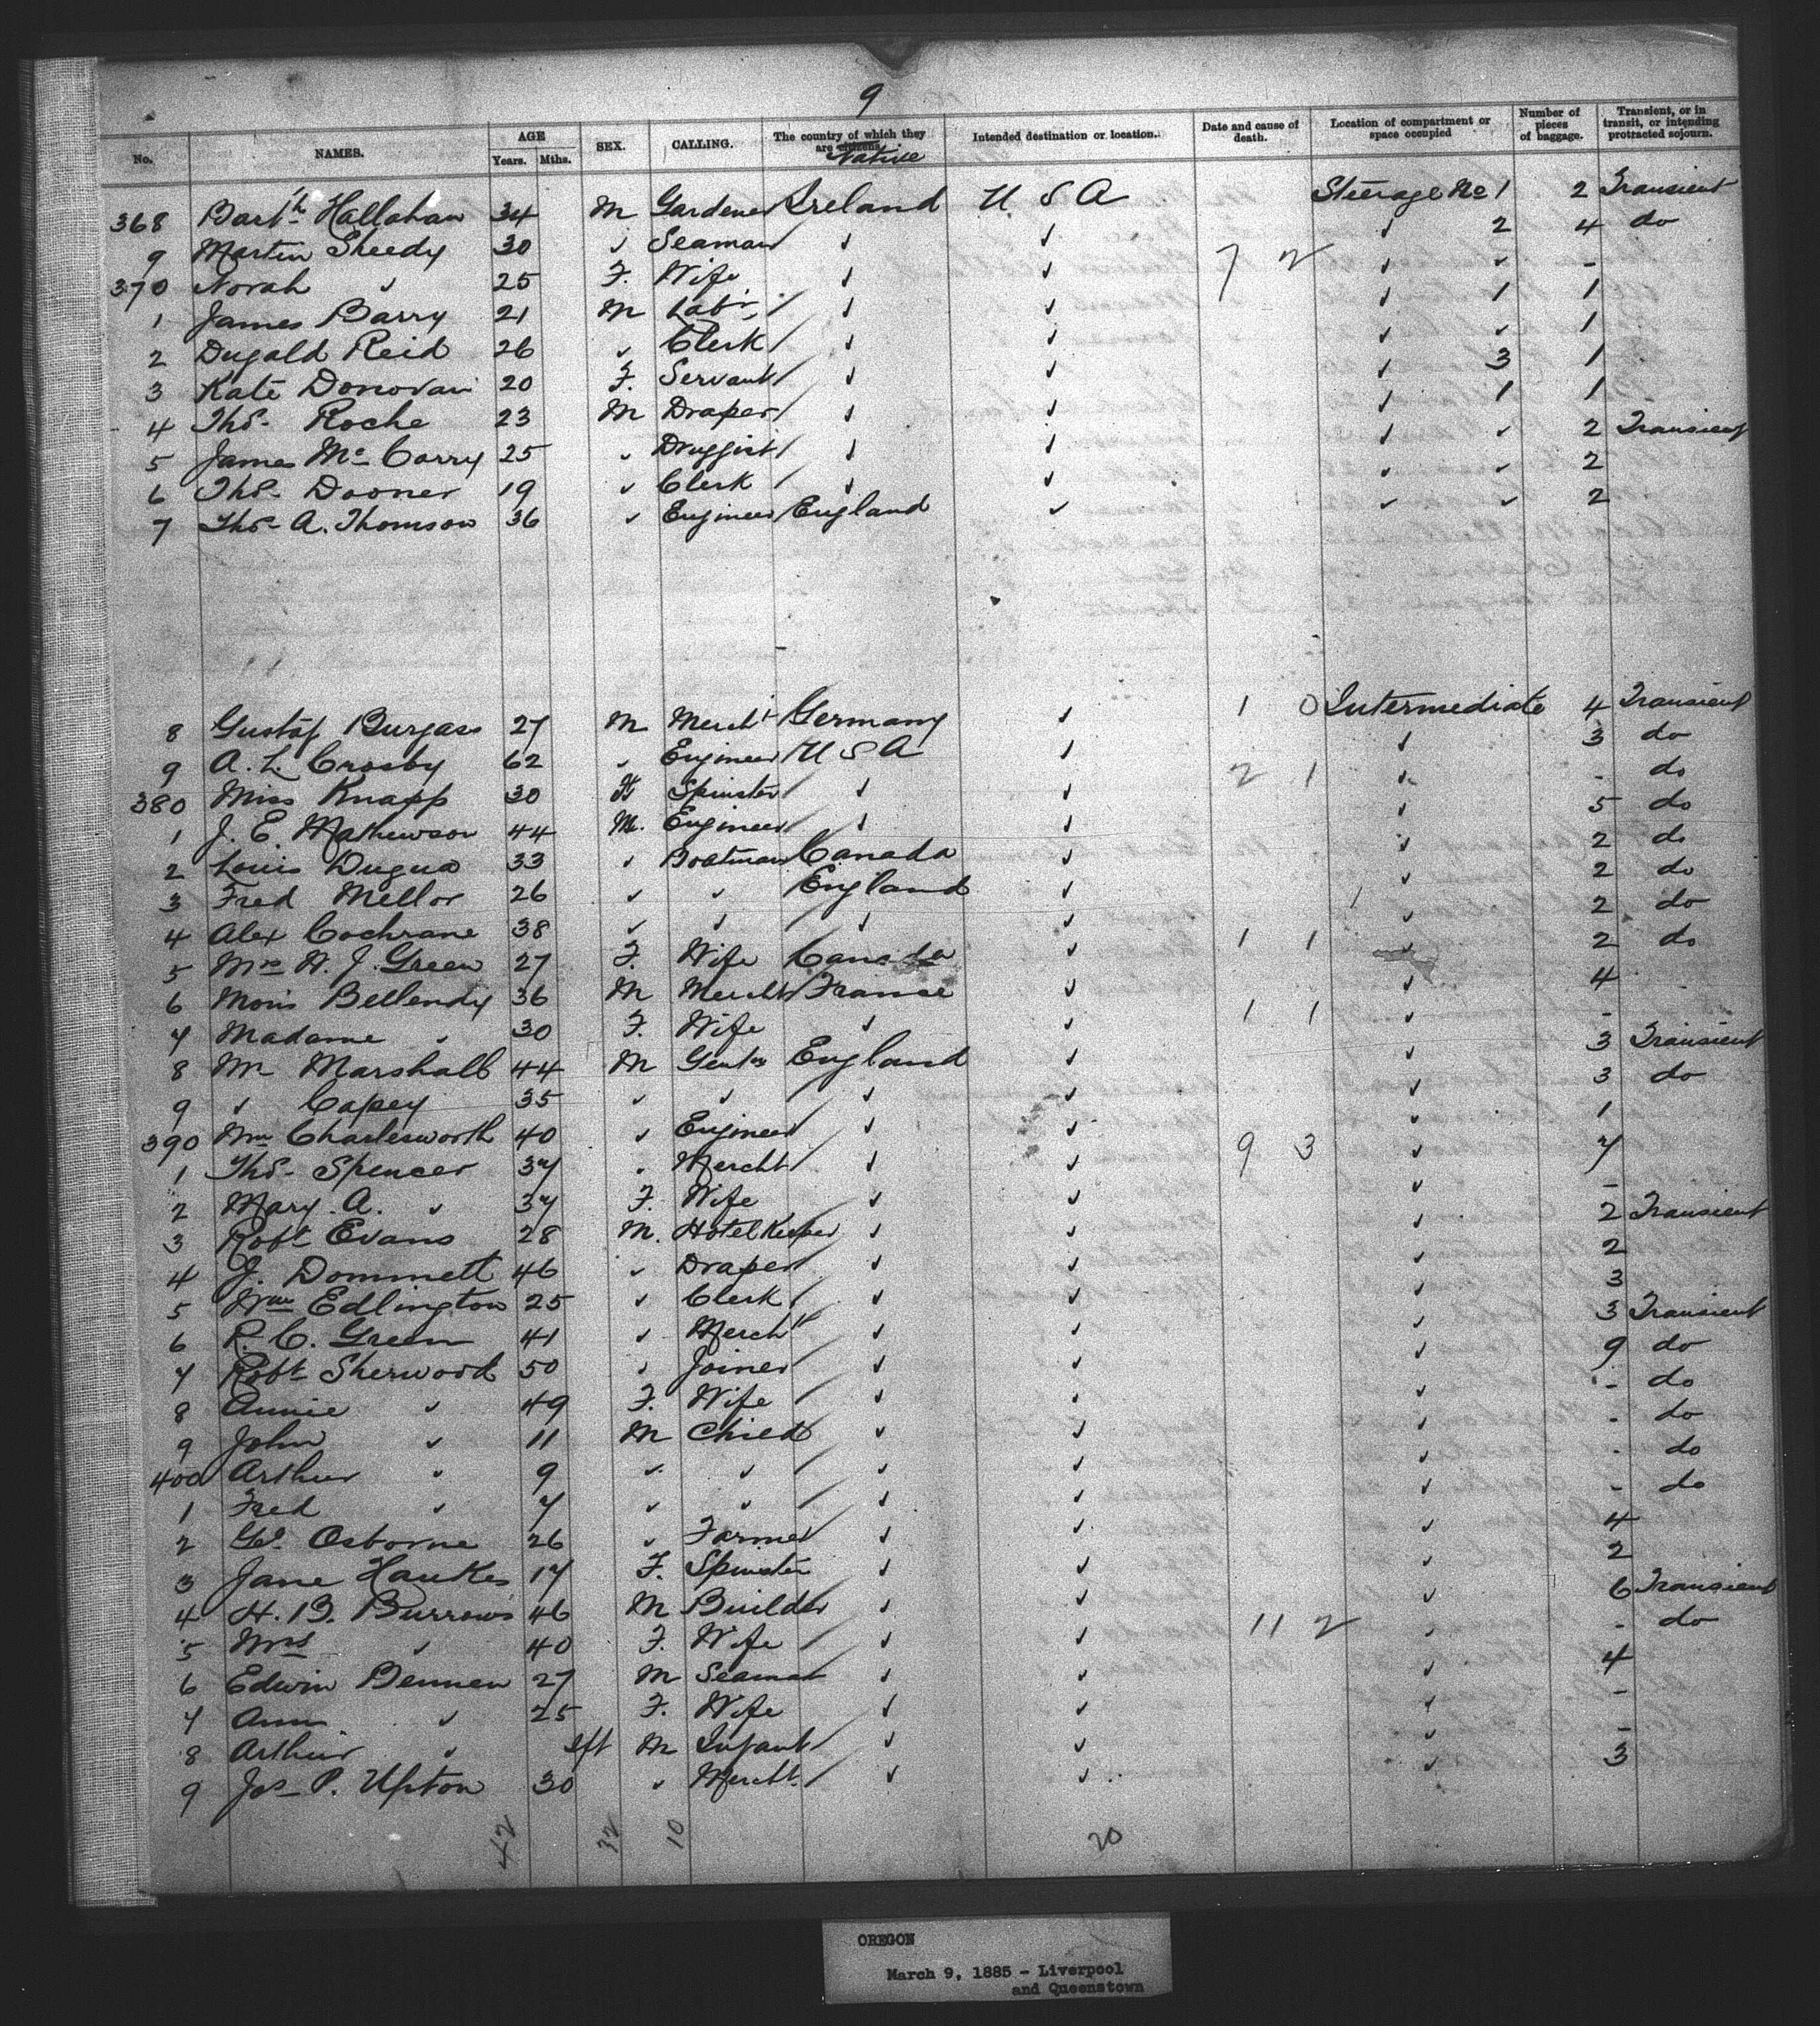 9
No. NAMES. AGE Years. Mths. SEX. CALLING. The country of which they are citizens. Native Intended destination or location. Date and cause of death. Location of compartment or space occupied Number of pieces of baggage. Transient, or in transit, or intending protracted sojourn.
368 Barth Hallahan 34 M Gardener Ireland U S A Steerage No 1 2 Transient
9 Martin Sheedy 30 ✓ Seaman ✓ ✓ ✓ 2 4 do
370 Norah ✓ 25 F. Wife ✓ ✓ 7 2 ✓ ✓ -
1 James Barry 21 M Labr. ✓ ✓ ✓ 1 1
2 Dugald Reid 26 ✓ Clerk ✓ ✓ ✓ ✓ 1
3 Kate Donovan 20 F. Servant ✓ ✓ ✓ 3 1
4 Thos. Roche 23 M Draper ✓ ✓ ✓ 1 1
5 James Mc Corry 25 ✓ Druggist ✓ ✓ ✓ ✓ 2 Transient
6 Thos. Dooner 19 ✓ Clerk ✓ ✓ ✓ ✓ 2
7 Thos. A. Thomson 36 ✓ Engineer England ✓ ✓ ✓ 2
8 Gustaf Burgass 27 M Mercht Germany ✓ 1 0 Intermediate 4 Transient
9 A. L. Crosby 62 ✓ Engineer U S A ✓ ✓ 3 do
380 Miss Knapp 30 F Spinster ✓ ✓ 2 1 ✓ - do
1 J. E. Mathewson 44 M. Engineer ✓ ✓ ✓ 5 do
2 Louis Dugua 33 ✓ Boatman Canada ✓ ✓ 2 do
3 Fred Mellor 26 ✓ ✓ England ✓ ✓ 2 do
4 Alex Cochrane 38 ✓ ✓ ✓ ✓ ✓ 2 do
5 Mrs H. J. Green 27 F. Wife Canada ✓ 1 1 ✓ 2 do
6 Mons Bellendy 36 M Mercht France ✓ ✓ 4
7 Madame ✓ 30 F. Wife ✓ ✓ 1 1 ✓ -
8 Mr Marshall 44 M Gentn England ✓ ✓ 3 Transient
9 ✓ Capey 35 ✓ ✓ ✓ ✓ ✓ 3 do
390 Wm Charlesworth 40 ✓ Engineer ✓ ✓ ✓ 1
1 Thos. Spencer 37 ✓ Mercht ✓ ✓ 9 3 ✓ 7
2 Mary. A. ✓ 37 F. Wife ✓ ✓ ✓ -
3 Robt Evans 28 M. Hotel Keeper ✓ ✓ ✓ 2 Transient
4 J. Dommett 46 ✓ Draper ✓ ✓ ✓ 2
5 Wm Edlington 25 ✓ Clerk ✓ ✓ ✓ 3
6 R. C. Green 41 ✓ Mercht ✓ ✓ ✓ 3 Transient
7 Robt Sherwood 50 ✓ Joiner ✓ ✓ ✓ 9 do
8 Annie ✓ 49 F. Wife ✓ ✓ ✓ - do
9 John ✓ 11 M Child ✓ ✓ ✓ - do
400 Arthur ✓ 9 ✓ ✓ ✓ ✓ ✓ - do
1 Fred ✓ 7 ✓ ✓ ✓ ✓ ✓ - do
2 Geo. Osborne 26 ✓ Farmer ✓ ✓ ✓ 4
3 Jane Hawkes 17 F. Spinster ✓ ✓ ✓ 2
4 H. B. Burrows 46 M Builder ✓ ✓ ✓ 6 Transient
5 Mrs ✓ 40 F. Wife ✓ ✓ 11 2 ✓ - do
6 Edwin Bennen 27 M Seaman ✓ ✓ ✓ 4
7 Ann ✓ 25 F. Wife ✓ ✓ ✓ -
8 Arthur ✓ Inft M Infant ✓ ✓ ✓ -
9 Jas P. Upton 30 ✓ Mercht. ✓ ✓ ✓ 3
42 32 10 20
OREGON
March 9, 1885 - Liverpool
and Queenstown